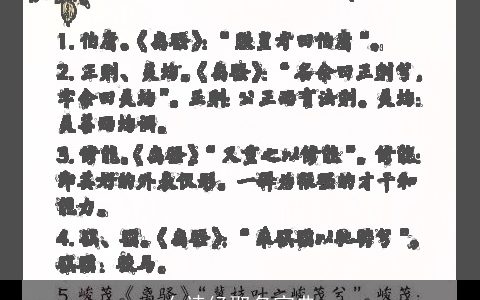 1.伯庸。《离骚》:“朕皇考曰伯庸”。
2.正则、灵均。《离骚》:“名余曰正则兮,
字余曰灵均”。正则:公正而有法则。灵均:
灵善而均调。
3.修能。《离骚》“又重之以修能”。修能:
即美好的外表仪形。一释为很强的才干和
能力。
4.骐、骥。《离骚》:“乘骐骥以驰骋兮”。
骐骥:骏马。
5.峻茂。《离骚》“冀枝叶之峻茂兮”。峻茂: